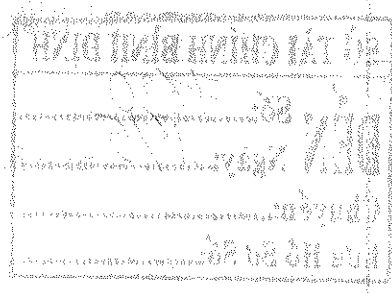 SỞ TÀI CHÍNH BÌNH ĐỊNH
ĐẾN
Số:
Ngày:
Chuyển:
Lưu Hồ Sơ Số: